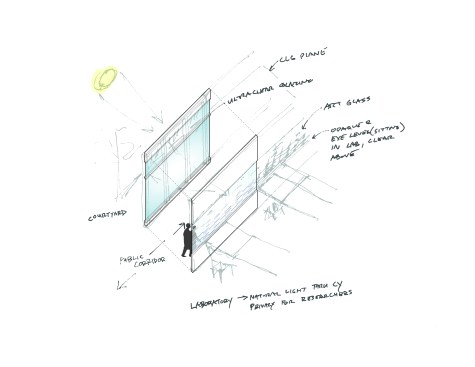 CLG PLANE
ULTRACLEAR GLAZING
ART GLASS
OPAQUE @
EYE LEVEL (SITTING)
IN LAB, CLEAR
ABOVE
COURTYARD
PUBLIC
CORRIDOR
LABORATORY → NATURAL LIGHT
PRIVACY FOR RESEARCHERS